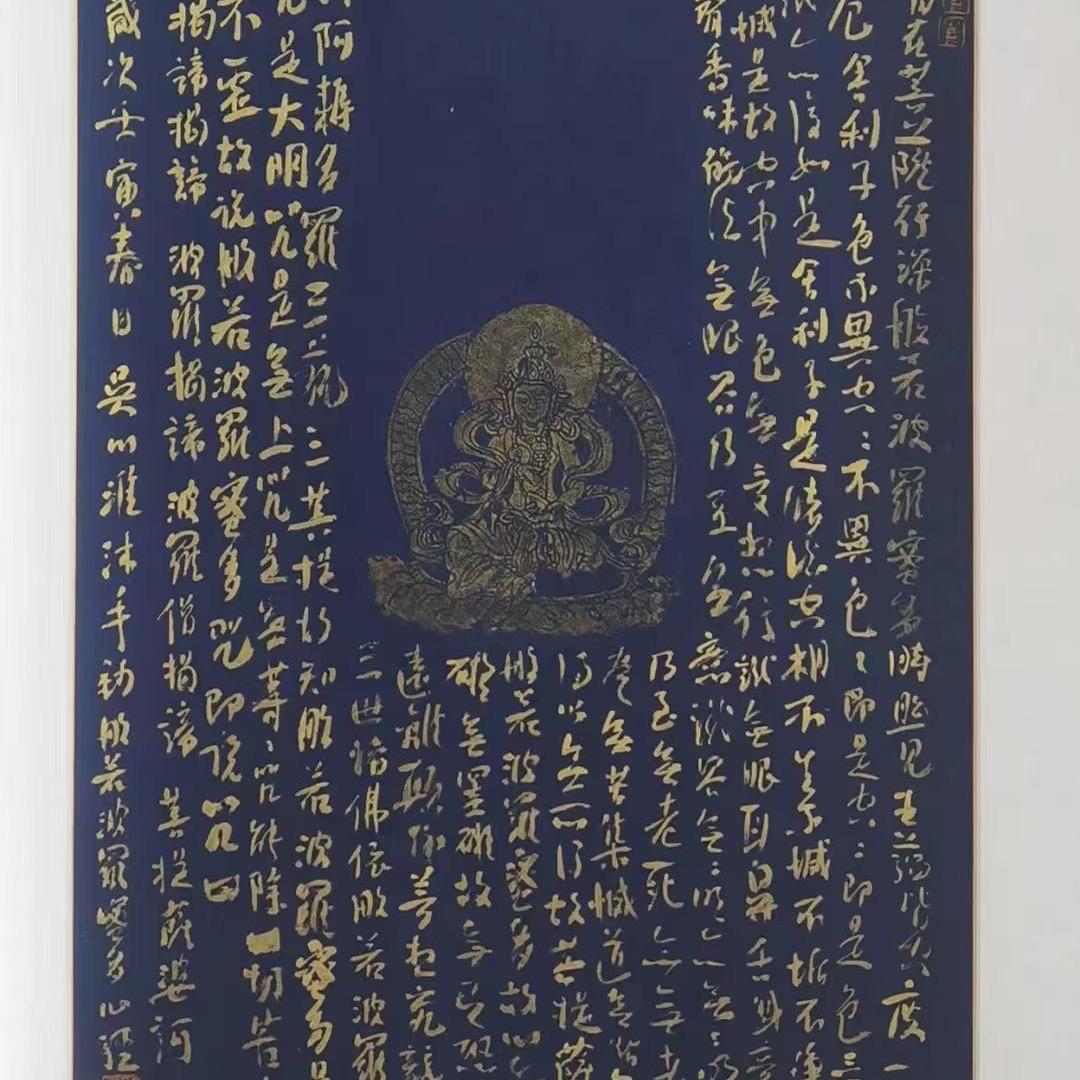 在菩薩行深般若波羅蜜多時照見五蘊皆空度一
厄舍利子色不異空空不異色色即是空空即是色
亦復如是舍利子是諸法空相不生不滅不垢不淨
減是故空中無色無受想行識無眼耳鼻舌身意
聲香味觸法無眼界乃至無意識界無無明亦無無明
乃至無老死亦無老
盡無苦集滅道無智
得以無所得故菩提薩
般若波羅蜜多故心無
礙無罣礙故無有恐
遠離顛倒夢想究竟
三世諸佛依般若波羅
阿耨多羅三藐三菩提故知般若波羅蜜多是
咒是大明咒是無上咒是無等等咒能除一切苦
不虛故說般若波羅蜜多咒即說咒曰
揭諦揭諦 波羅揭諦 波羅僧揭諦 菩提薩婆訶
歲次壬寅春日吳以淮沐手 般若波羅蜜多心經